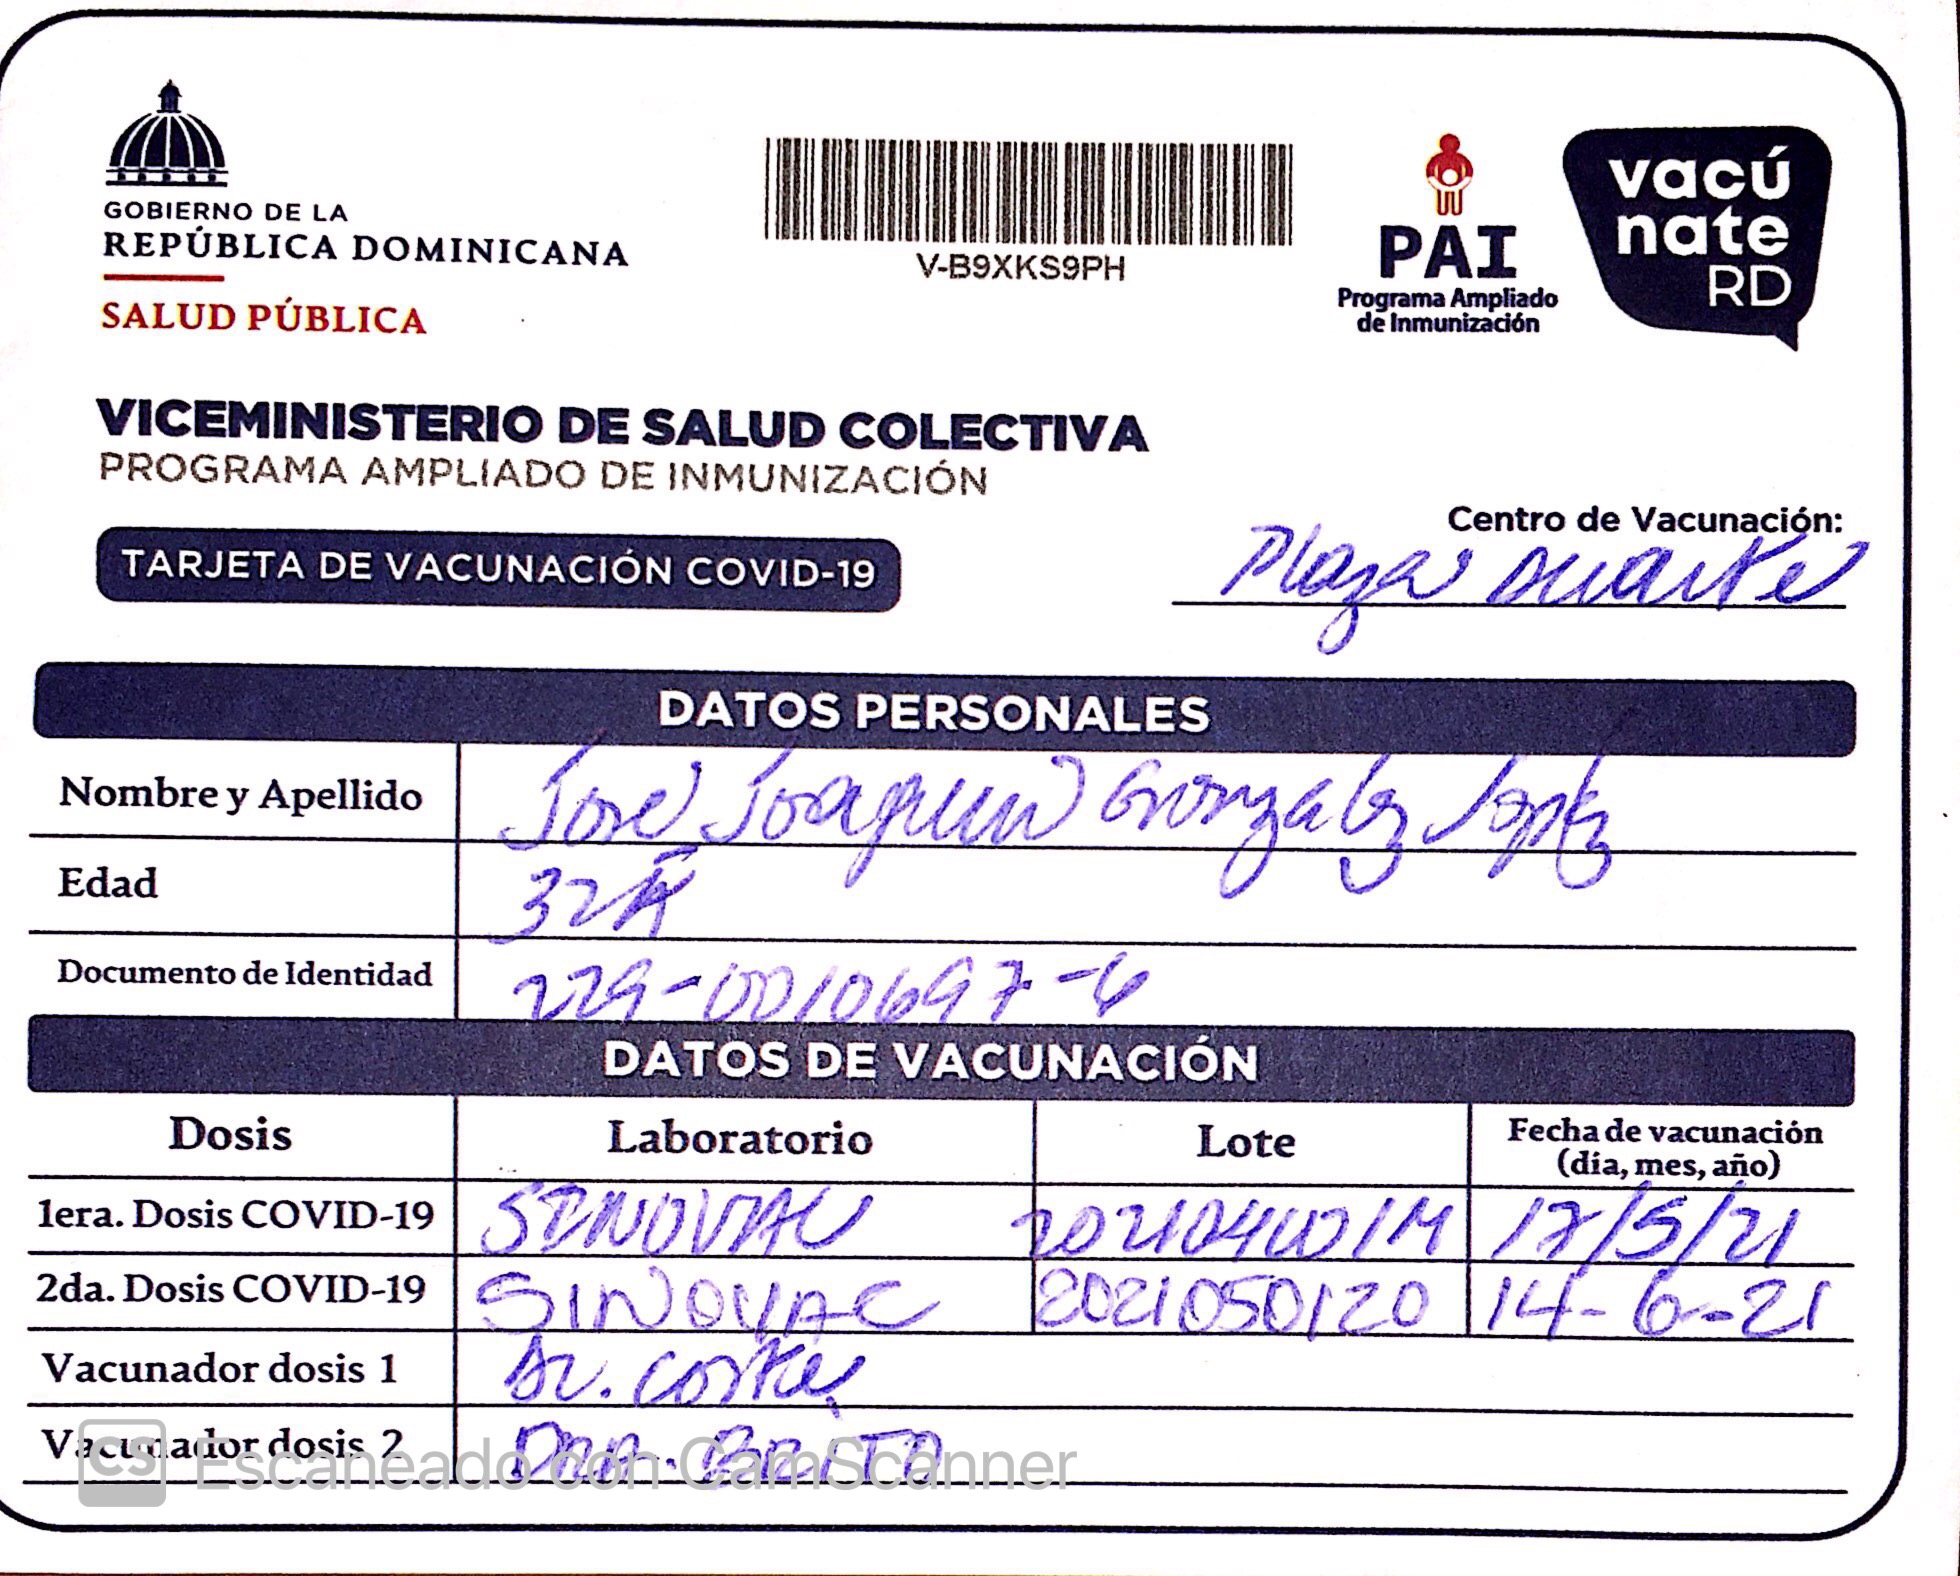 GOBIERNO DE LA
REPÚBLICA DOMINICANA
SALUD PÚBLICA
V-B9XKS9PH
PAI
Programa Ampliado
de Inmunización
vacú
nate
RD
VICEMINISTERIO DE SALUD COLECTIVA
PROGRAMA AMPLIADO DE INMUNIZACIÓN
TARJETA DE VACUNACIÓN COVID-19
Centro de Vacunación:
Plaza Duarte
DATOS PERSONALES
Nombre y Apellido Jose Joaquin Gonzalez Lopez
Edad 32A
Documento de Identidad 229-0010697-6
DATOS DE VACUNACIÓN
Dosis Laboratorio Lote Fecha de vacunación
(día, mes, año)
1era. Dosis COVID-19 SINOVAC 17/5/21
2da. Dosis COVID-19 SINOVAC 2021050120 14-6-21
Vacunador dosis 1 Dr.
Vacunador dosis 2 DRA. BRITO
CS Escaneado con CamScanner